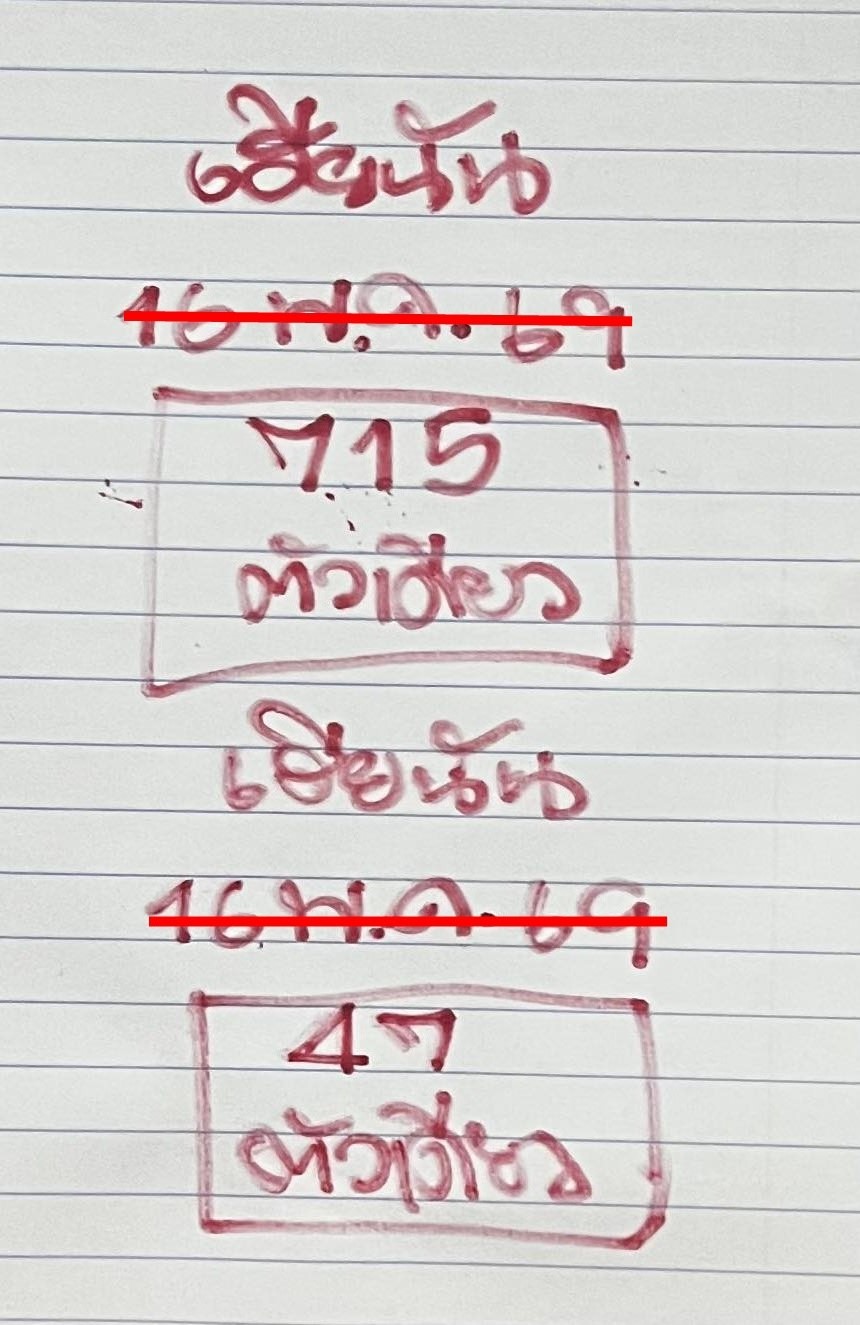 เฮียนัน
16 พ.ค. 69
715
ตัวเดียว
เฮียนัน
16 พ.ค. 69
47
ตัวเดียว